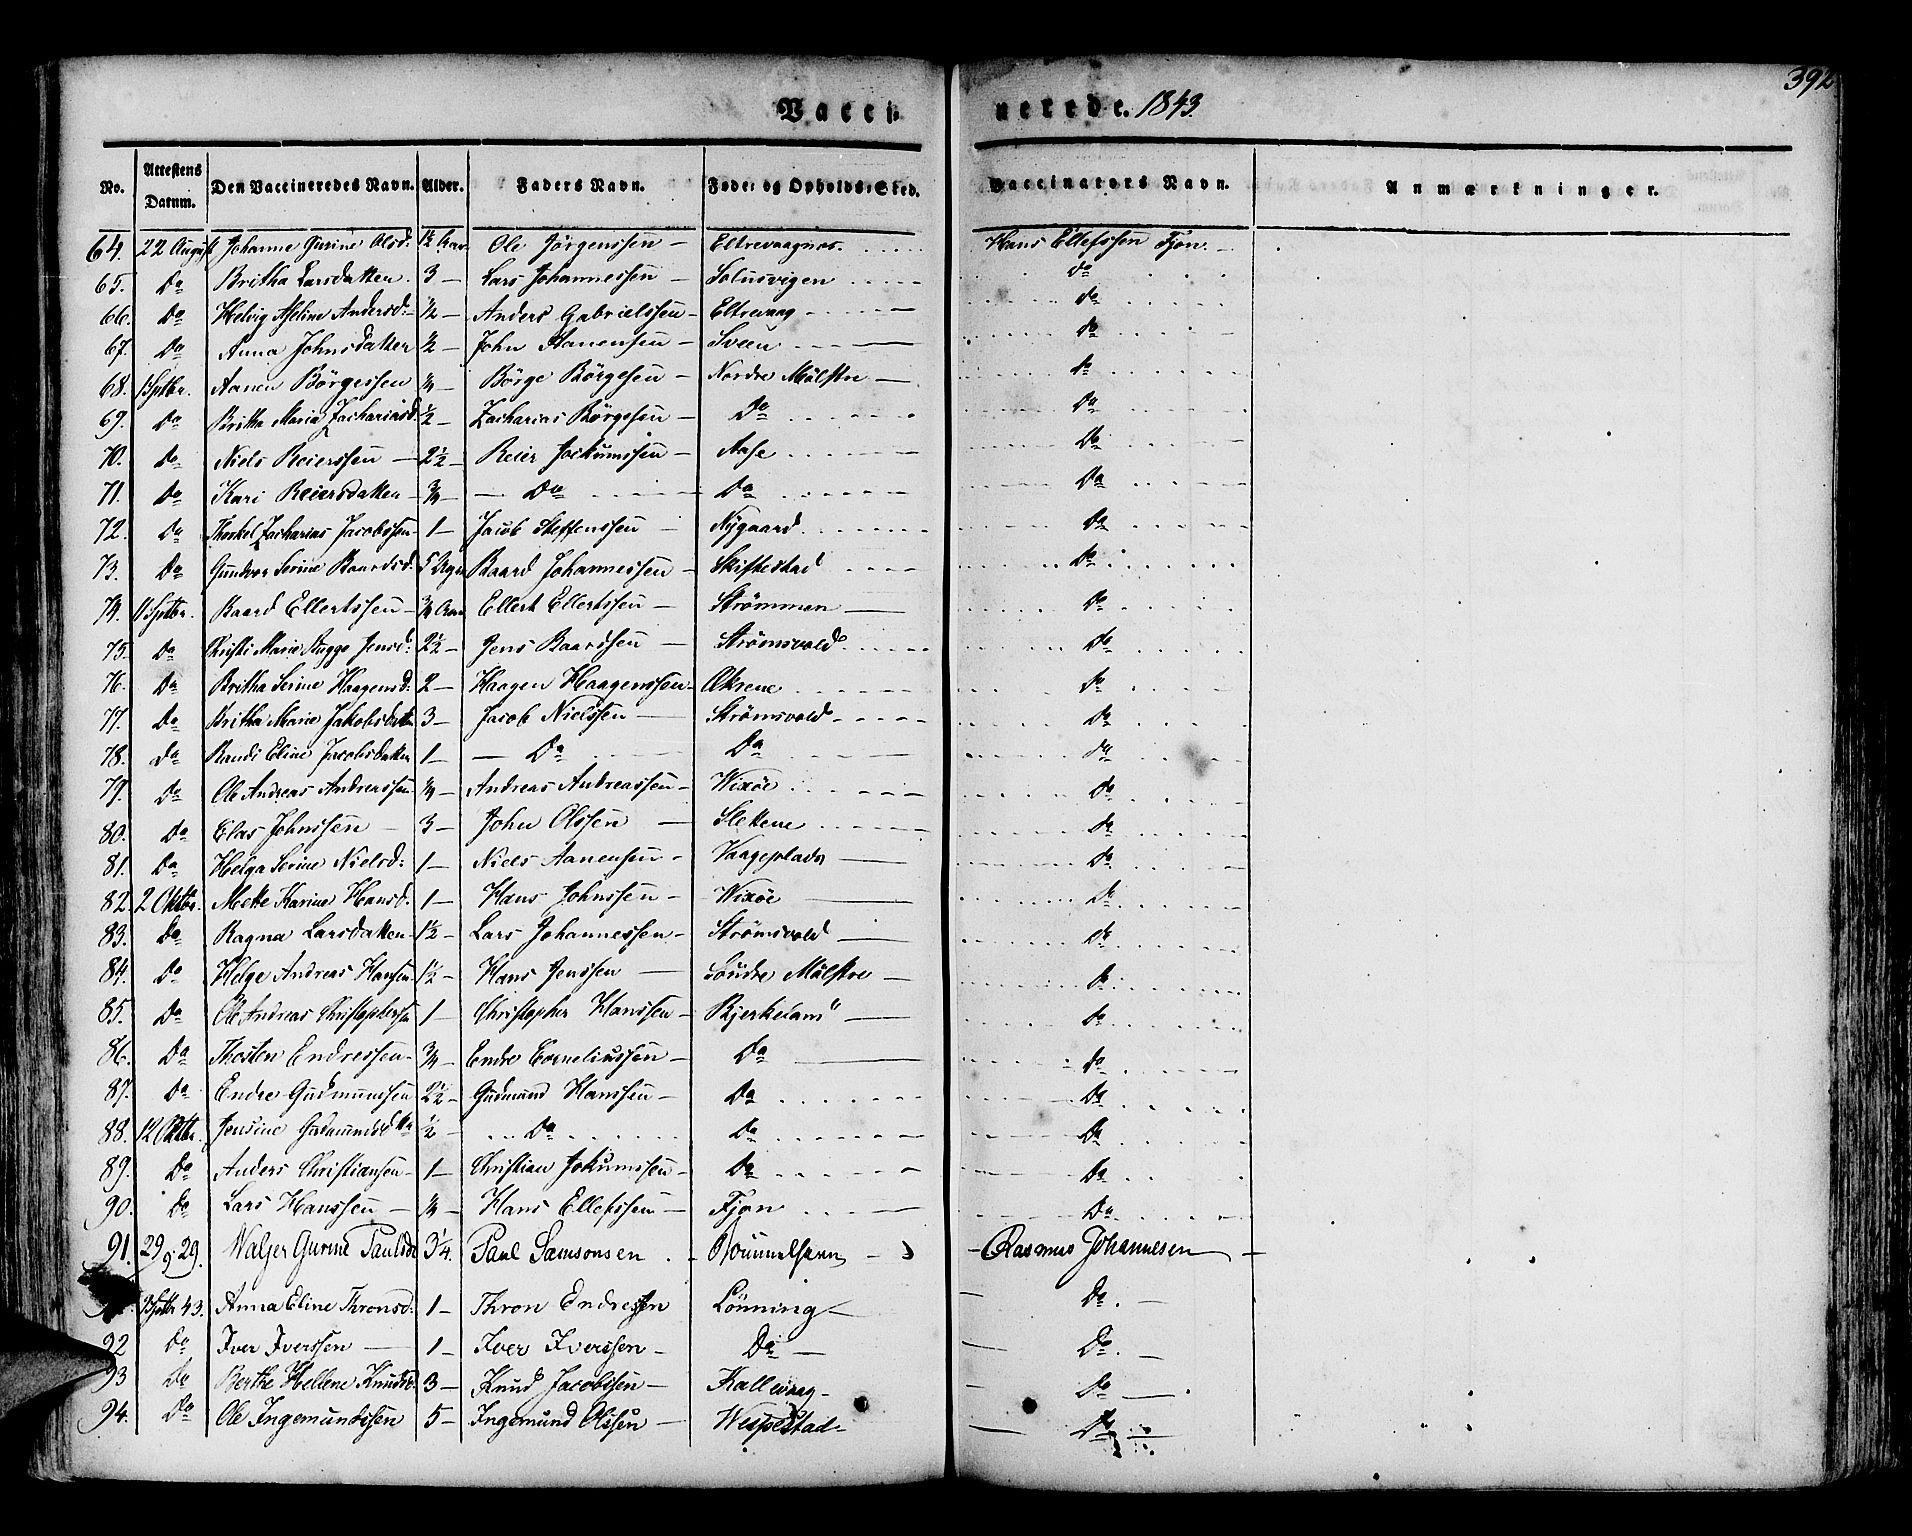 392
Vacci- nerede. 1843.
No. Attestens Datum. Den Vaccineredes Navn. Alder. Faders Navn. Føde: og Opholds-Sted. Vaccinators Navn. Anmærkninger.
64. 22 August Johanne Gurine Olsd: 1½ Aar Ole Jörgenssen - Eltrevaagnes. Hans Ellefssen Fjon.
65. Do Britha Larsdatter. 3 - Lars Johannessen - Solusvigen Do
66. Do Helvig Aseline Andersd: ½ - Anders Gabrielssen - Eltrevaag Do
67. Do Anna Johnsdatter ½ - John Aanensen - Sveen Do
68. 1 Sptbr. Aanen Börgessen ¼ - Börge Börgesen - Nordre Mölstre - Do
69. Do Britha Maria Zachariasd. ½ - Zacharias Börgesen - Do Do
70. Do Niels Reierssen - 2½ - Reier Jockumssen - Aase Do
71. Do Kari Reiersdatter - ¾ - - Do Do Do
72. Do Thorkel Zacharias Jacobssen 1 - Jacob Steffenssen - Nygaard Do
73. Do Gundvor Serine Baardsd. 5 Uger Baard Johannessen - Skiftestad Do
74. 11 Sptbr. Baard Ellertssen - ¾ Aar Ellert Ellertssen - Strömmen - Do
75. Do Christi Maria Rugge Jensd: 2½ - Jens Baardsen - Strömsvold Do
76. Do Britha Serine Haagensd. 2 - Haagen Haagenssen - Økrene Do
77. Do Britha Marie Jakobsdatter 3 - Jacob Nielssen - Strömsvold Do
78. Do Randi Eline Jacobsdatter 1 - - Do Do Do
79. Do Ole Andreas Andreassen ¼ - Andreas Andreassen - Wixöe Do
80. Do Elas Johnssen - 3 - John Olssen - Slekene Do
81. Do Helga Serine Nielsd: 1 - Niels Aanensen - Vaageplads - Do
82. 2 Oktbr. Mette Karine Hansd. 1 - Hans Johnssen - Wixöe - Do
83. Do Ragna Larsdatter - 1½ - Lars Johannessen - Strömsvold - Do
84. Do Helge Andreas Hanssen 1½ - Hans Jenssen - Söndre Mölstre - Do
85. Do Ole Andreas Christophersen 1 - Christopher Hanssen - Bjerkelam" - Do
86. Do Thosten Endressen - ¾ - Endre Corneliussen - Do Do
87. Do Endre Gudmunssen 2½ - Gudmund Hanssen - Do Do
88. 12 Oktbr. Jensine Gudmundsdtr ½ - Do Do Do
89. Do Anders Christiansen - 1 - Christian Jokumssen - Do Do
90. Do Lars Hanssen - ¼ - Hans Ellefssen - Fjon Do
91. 29/9 29. Valjer Gurine Paulsd 3¼. Paul Samsonsen Rasmus Johannesen
Sptbr 43. Anna Eline Thronsd: 1 - Thron Endresen Lönning - Do.
92 Do Iver Iverssen - 1 - Iver Iverssen - Do - Do.
93 Do Berthe Hellene Knudsd. 3 - Knud Jacobssen - Kallevaag - Do
94. Do Ole Ingemundssen 5 - Ingemund Olssen - Wespestad - Do